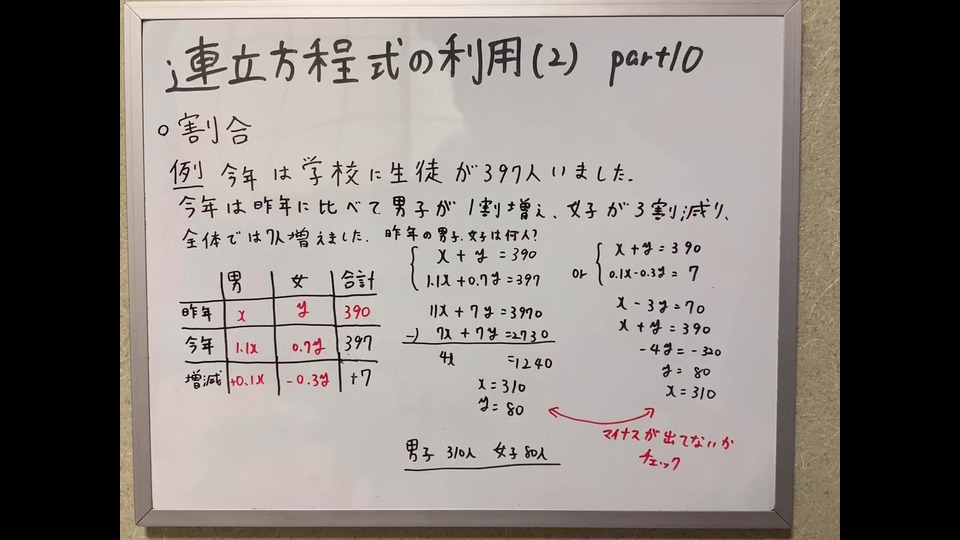 連立方程式の利用(2) part10
○割合
例 今年は学校に生徒が397人いました.
今年は昨年に比べて男子が1割増え、女子が3割減り、
全体では7人増えました. 昨年の男子、女子は何人?
男 女 合計
昨年 x y 390
今年 1.1x 0.7y 397
増減 +0.1x -0.3y +7
x + y = 390
1.1x + 0.7y = 397
11x + 7y = 3970
-) 7x + 7y = 2730
4x = 1240
x = 310
y = 80
or
x + y = 390
0.1x - 0.3y = 7
x - 3y = 70
x + y = 390
-4y = -320
y = 80
x = 310
マイナスが出てないか
チェック
男子 310人 女子 80人